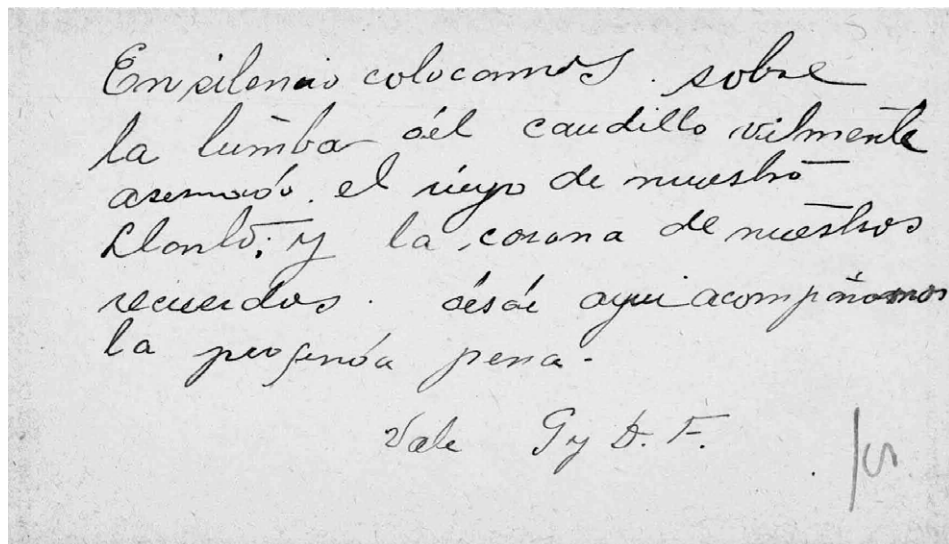 En silencio colocamos sobre
la tumba del caudillo vilmente
asesinado. el riego de nuestro
llanto; y la corona de nuestros
recuerdos. desde aqui acompañamos
la profunda pena.
Vale G y D. F.